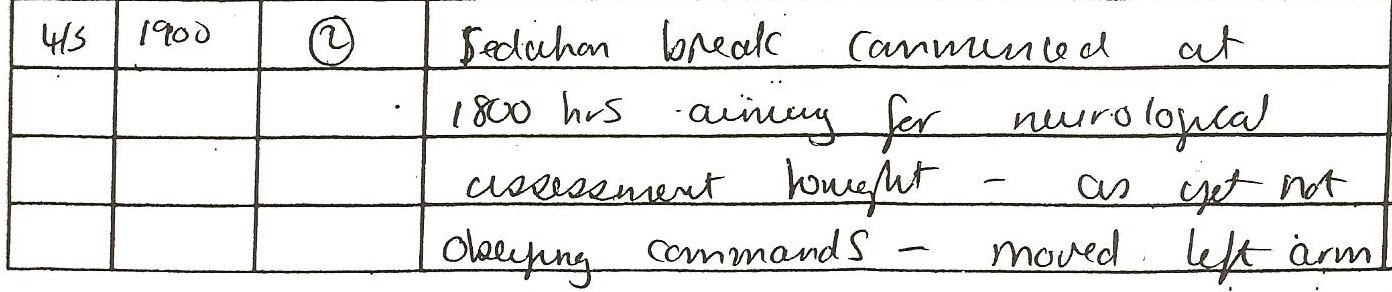 4/5 1900 ② Sedation break commenced at
1800 hrs aiming for neurological
assessment tonight - as yet not
obeying commands - moved left arm